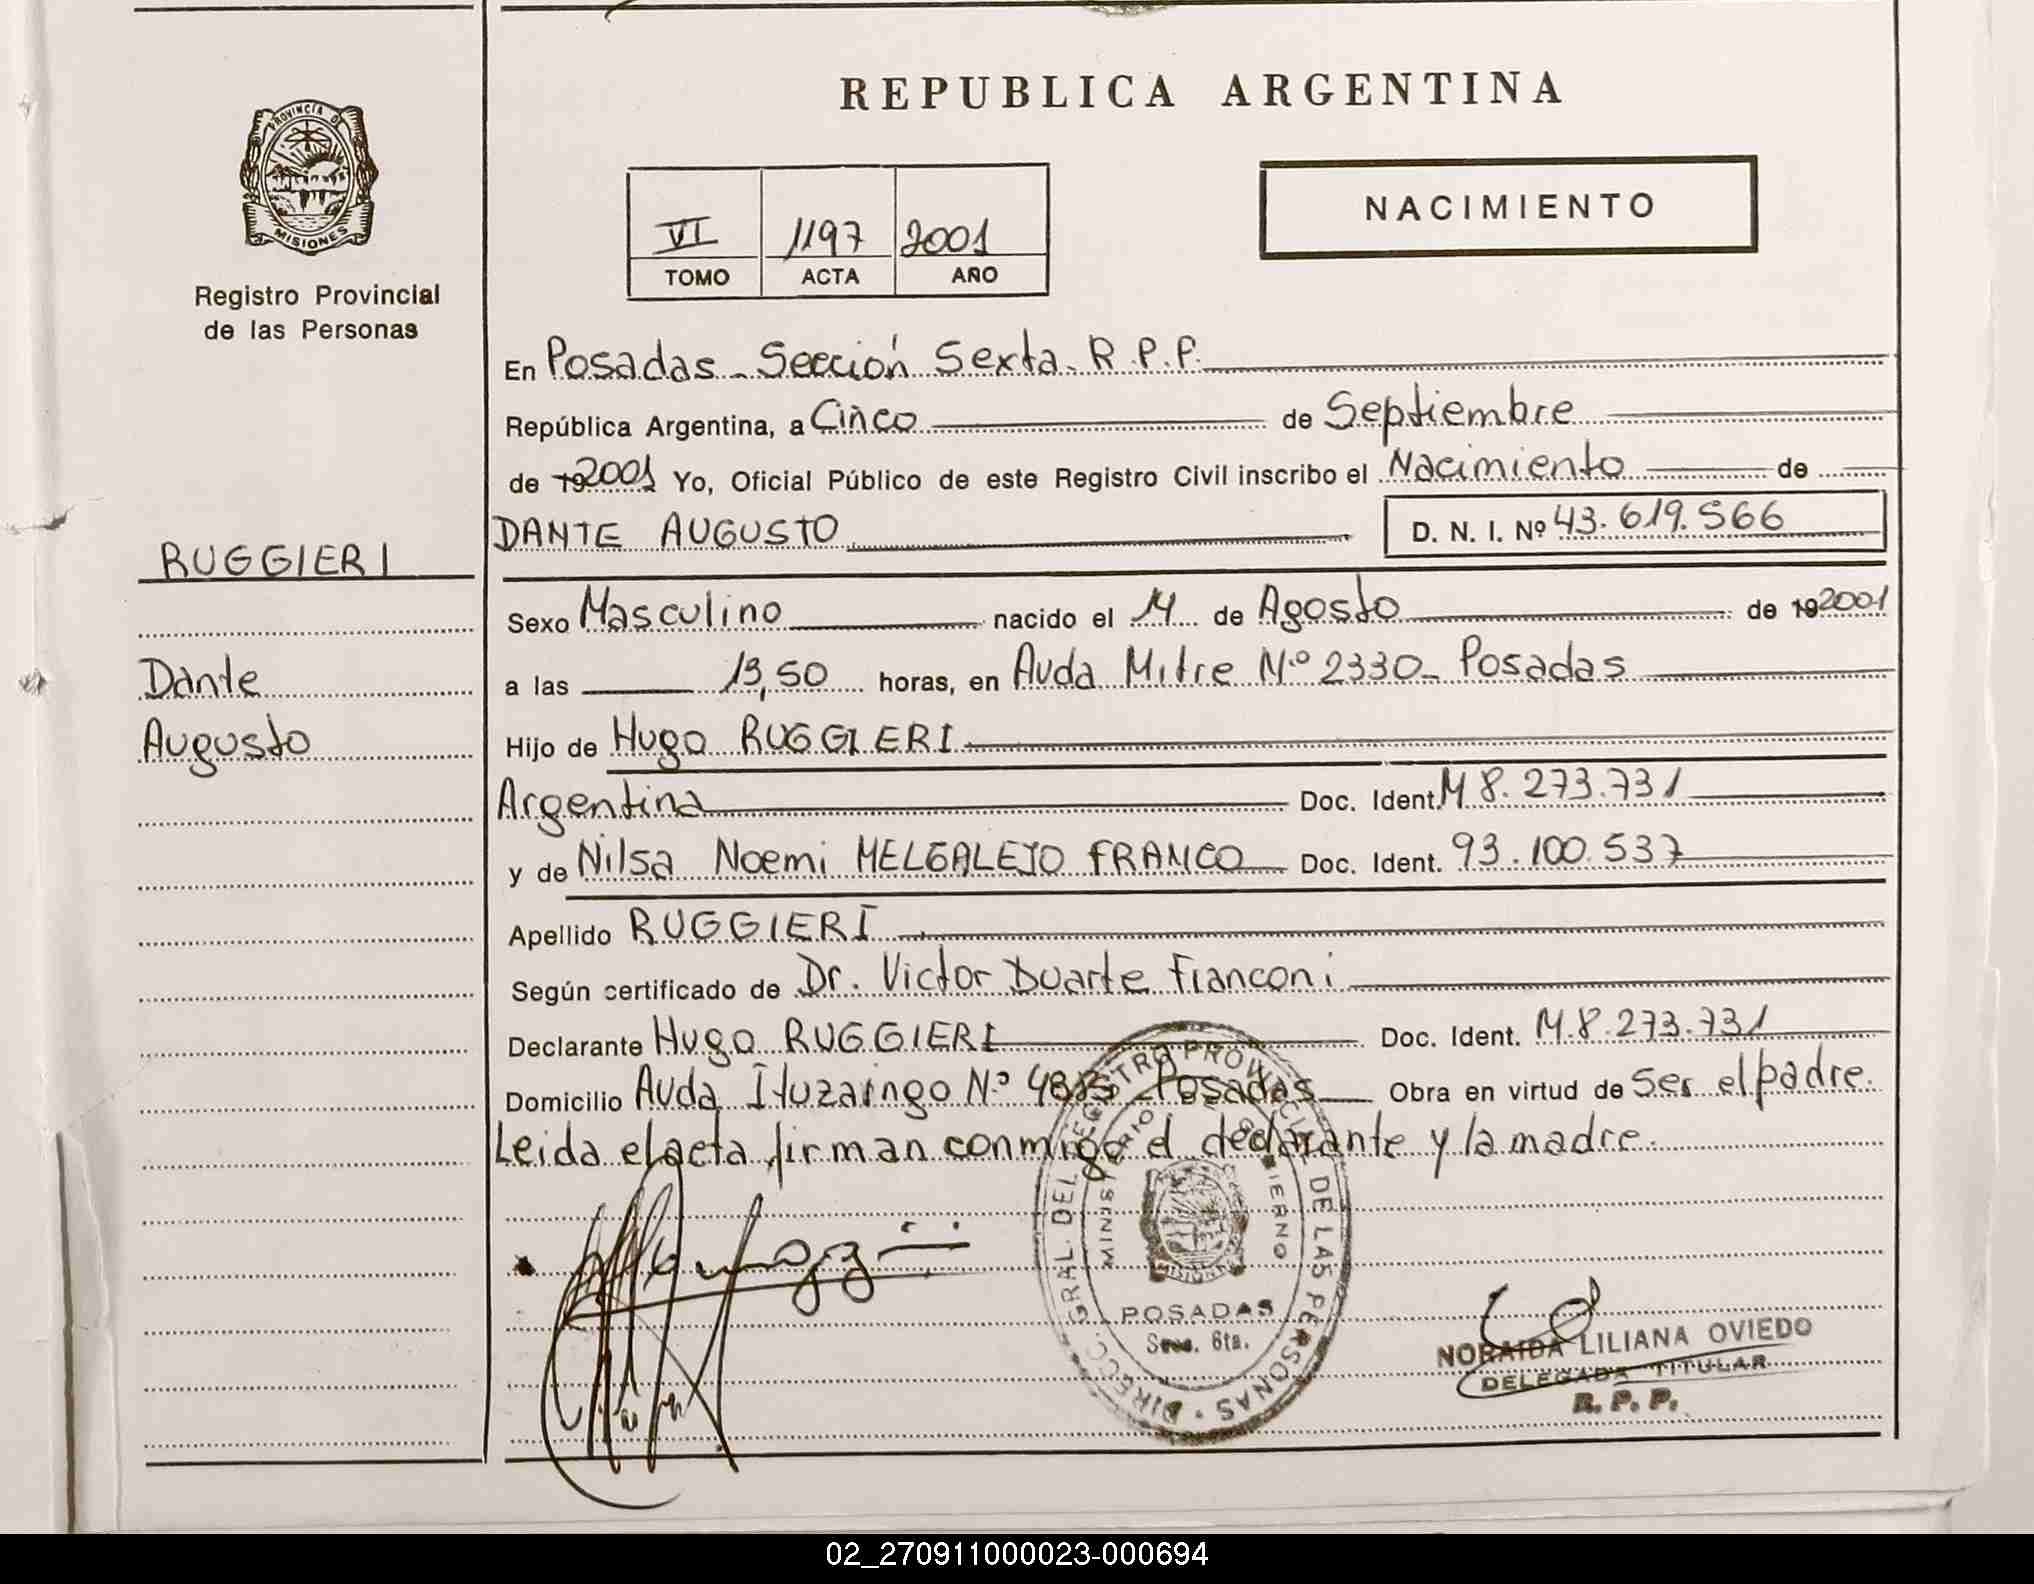 REPUBLICA ARGENTINA
PROVINCIA DE
MISIONES
Registro Provincial
de las Personas
VI 1197 2001
TOMO ACTA AÑO
NACIMIENTO
En Posadas - Sección Sexta - R.P.P.
República Argentina, a Cinco de Septiembre
de 192001 Yo, Oficial Público de este Registro Civil inscribo el Nacimiento de
DANTE AUGUSTO D. N. I. Nº 43.619.566
RUGGIERI
Dante
Augusto
Sexo Masculino nacido el 14 de Agosto de 192001
a las 13,50 horas, en Avda Mitre Nº 2330 - Posadas
Hijo de Hugo RUGGIERI
Argentina Doc. Ident. M 8.273.731
y de Nilsa Noemi MELGALEJO FRANCO Doc. Ident. 93.100.537
Apellido RUGGIERI
Según certificado de Dr. Victor Duarte Franconi
Declarante Hugo RUGGIERI Doc. Ident. M.8.273.731
Domicilio Avda Ituzaingo Nº Posadas Obra en virtud de Ser el padre.
Leida el acta firman conmigo el declarante y la madre.
DIRECC. GRAL. DEL REGISTRO PROVINCIAL DE LAS PERSONAS
MINISTERIO DE GOBIERNO
MISIONES
POSADAS
Secc. 6ta.
NORAIDA LILIANA OVIEDO
DELEGADA TITULAR
R. P. P.
02_270911000023-000694